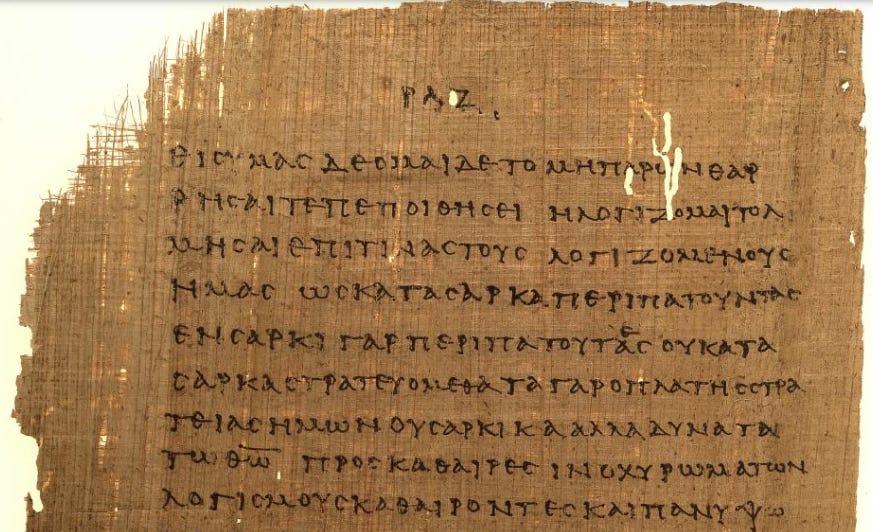 ΡΛΖ
ΘΙCΥΜΑC ΔΕΟΜΑΙΔΕΤΟΜΗΠΑΡΩΝΘΑΡ
ΡΗCΑΙΤΕΠΕΠΟΙΘΗCΕΙ ΗΛΟΓΙΖΟΜΑΙΤΟΛ
ΜΗCΑΙΕΠΙΤΙΝΑCΤΟΥC ΛΟΓΙΖΟΜΕΝΟΥC
ΗΜΑC ΩCΚΑΤΑCΑΡΚΑΠΕΡΙΠΑΤΟΥΝΤΑC
ΕΝCΑΡΚΙ ΓΑΡΠΕΡΙΠΑΤΟΥΤΑεC ΟΥΚΑΤΑ
CΑΡΚΑCΤΡΑΤΕΥΟΜΕΘΑΤΑΓΑΡΟΠΛΑΤΗCCΤΡΑ
ΤΕΙΑCΗΜΩΝΟΥCΑΡΚΙΚΑΑΛΛΑΔΥΝΑΤΑ
ΤΩ Θ̅Ω̅ ΠΡΟCΚΑΘΑΙΡΕCΙΝΟΧΥΡΩΜΑΤΩΝ
ΛΟΓΙCΜΟΥCΚΑΘΑΙΡΟΝΤΕCΚΑΙΠΑΝΥΨΩ